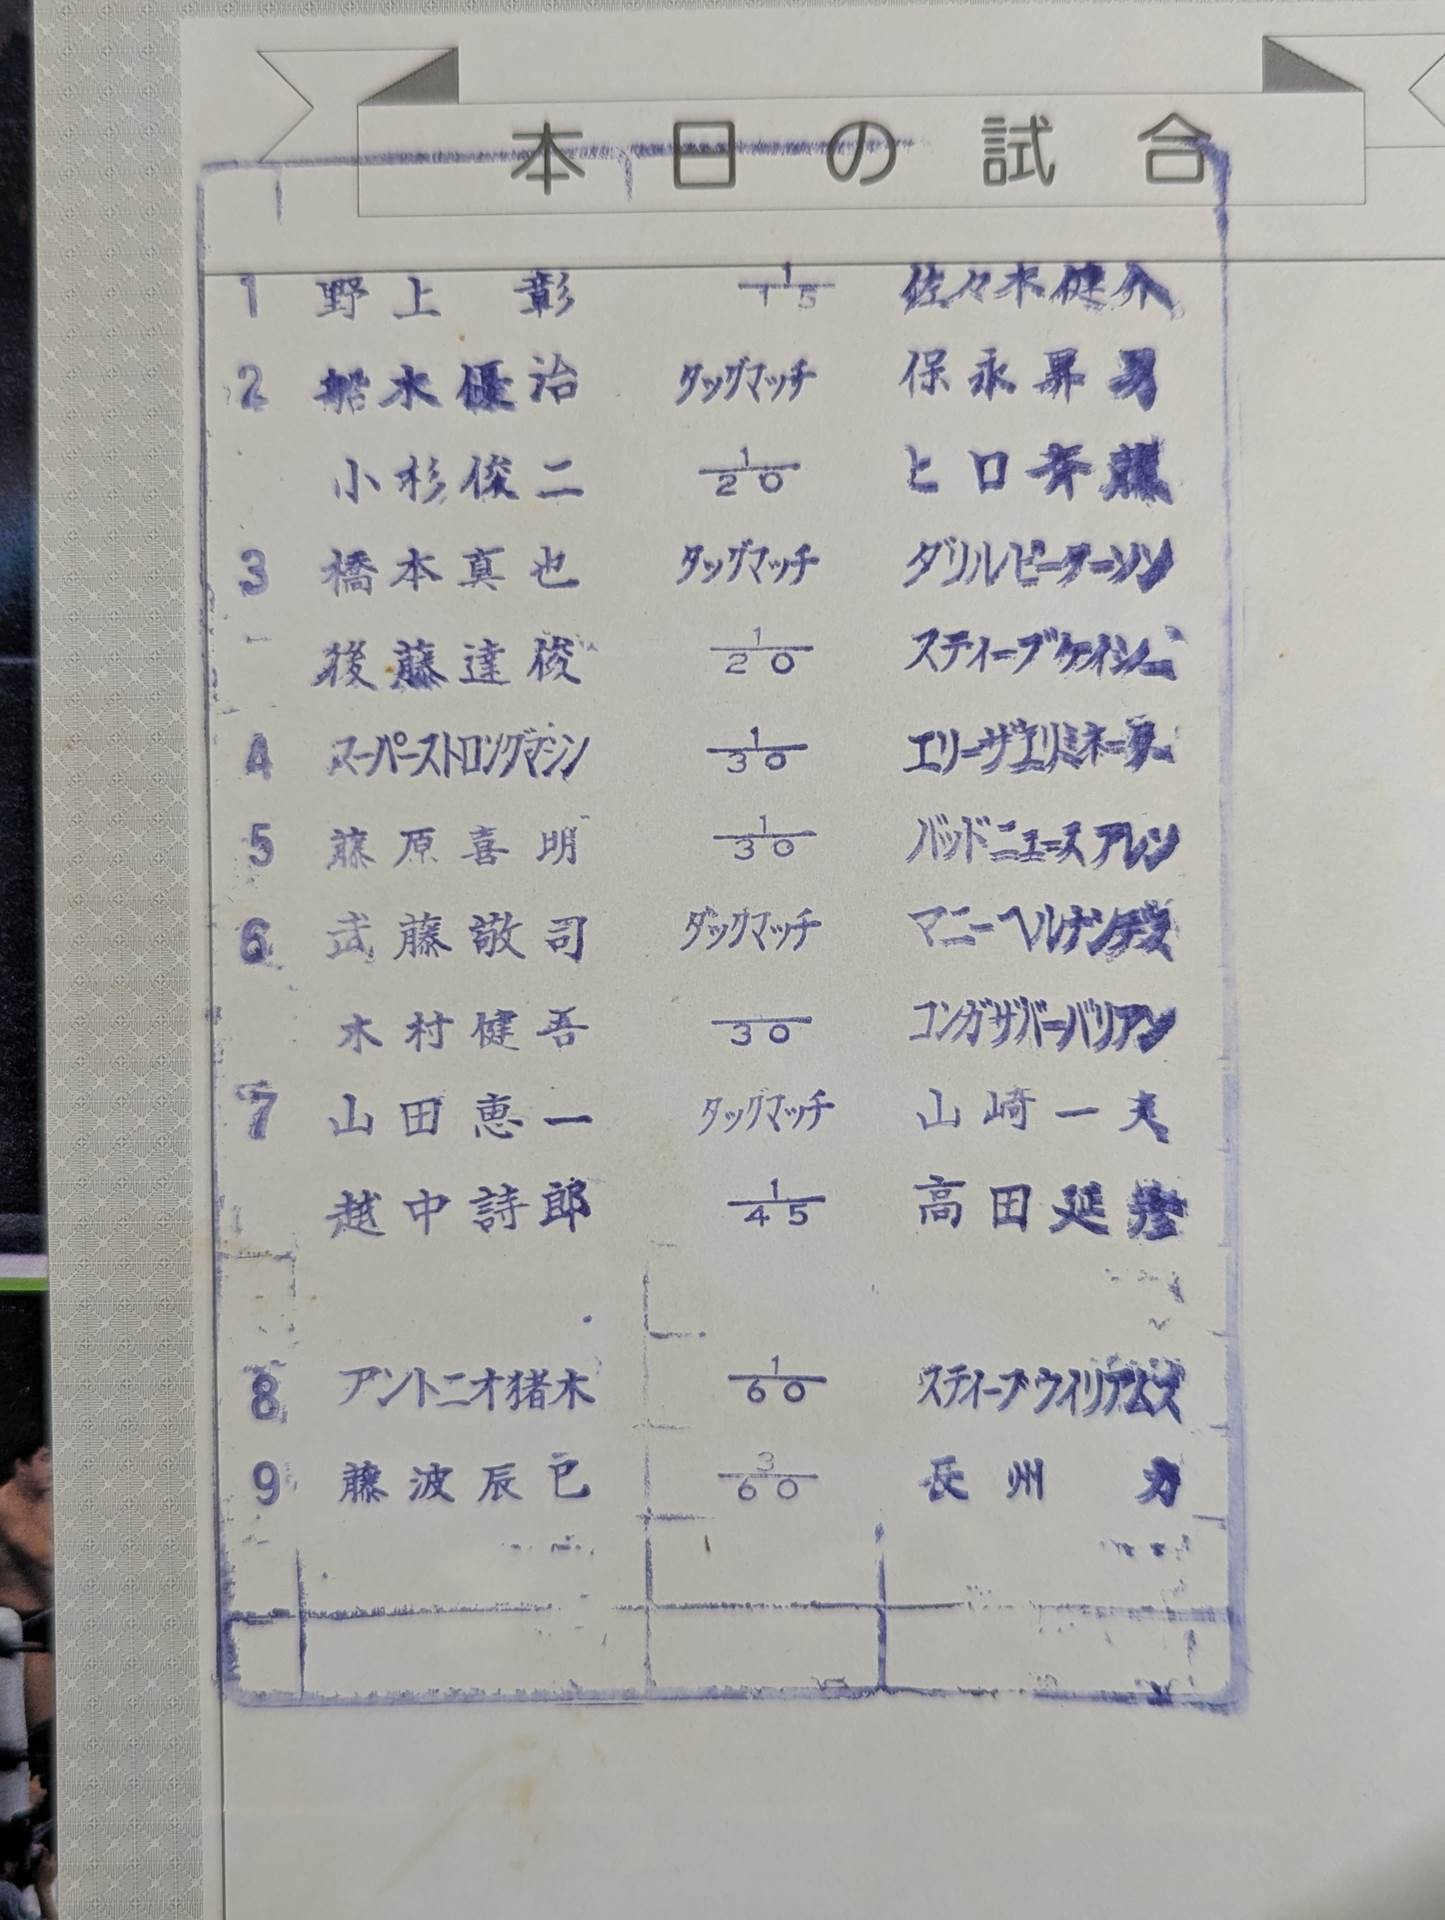 本日の試合
1 野上 彰 1/15 佐々木健介
2 船木優治 タッグマッチ 保永昇男
小杉俊二 1/20 ヒロ斉藤
3 橋本真也 タッグマッチ ダリルピーターソン
後藤達俊 1/20 スティーブケイシー
4 スーパーストロングマシン 1/30 エリーザエリミネーター
5 藤原喜明 1/30 バッドニュースアレン
6 武藤敬司 タッグマッチ マニーヘルナンデス
木村健吾 30 コンガザバーバリアン
7 山田恵一 タッグマッチ 山崎一夫
越中詩郎 1/45 高田延彦
8 アントニオ猪木 1/60 スティーブウイリアムズ
9 藤波辰巳 3/60 長州 力